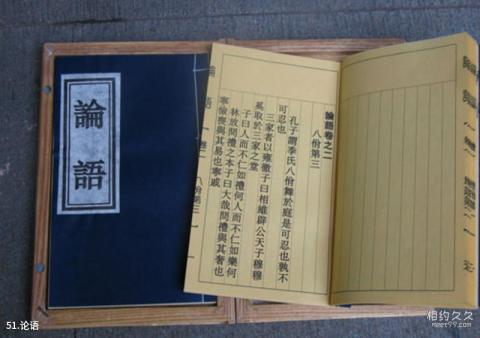 論語
論語卷之二
八佾第三
孔子謂季氏八佾舞於庭是可忍也孰不
可忍也
三家者以雍徹子曰相維辟公天子穆穆
奚取於三家之堂
子曰人而不仁如禮何人而不仁如樂何
林放問禮之本子曰大哉問禮與其奢也
寧儉喪與其易也寧戚
論語 卷二 八佾第三
51.论语
相约久久
meet99.com